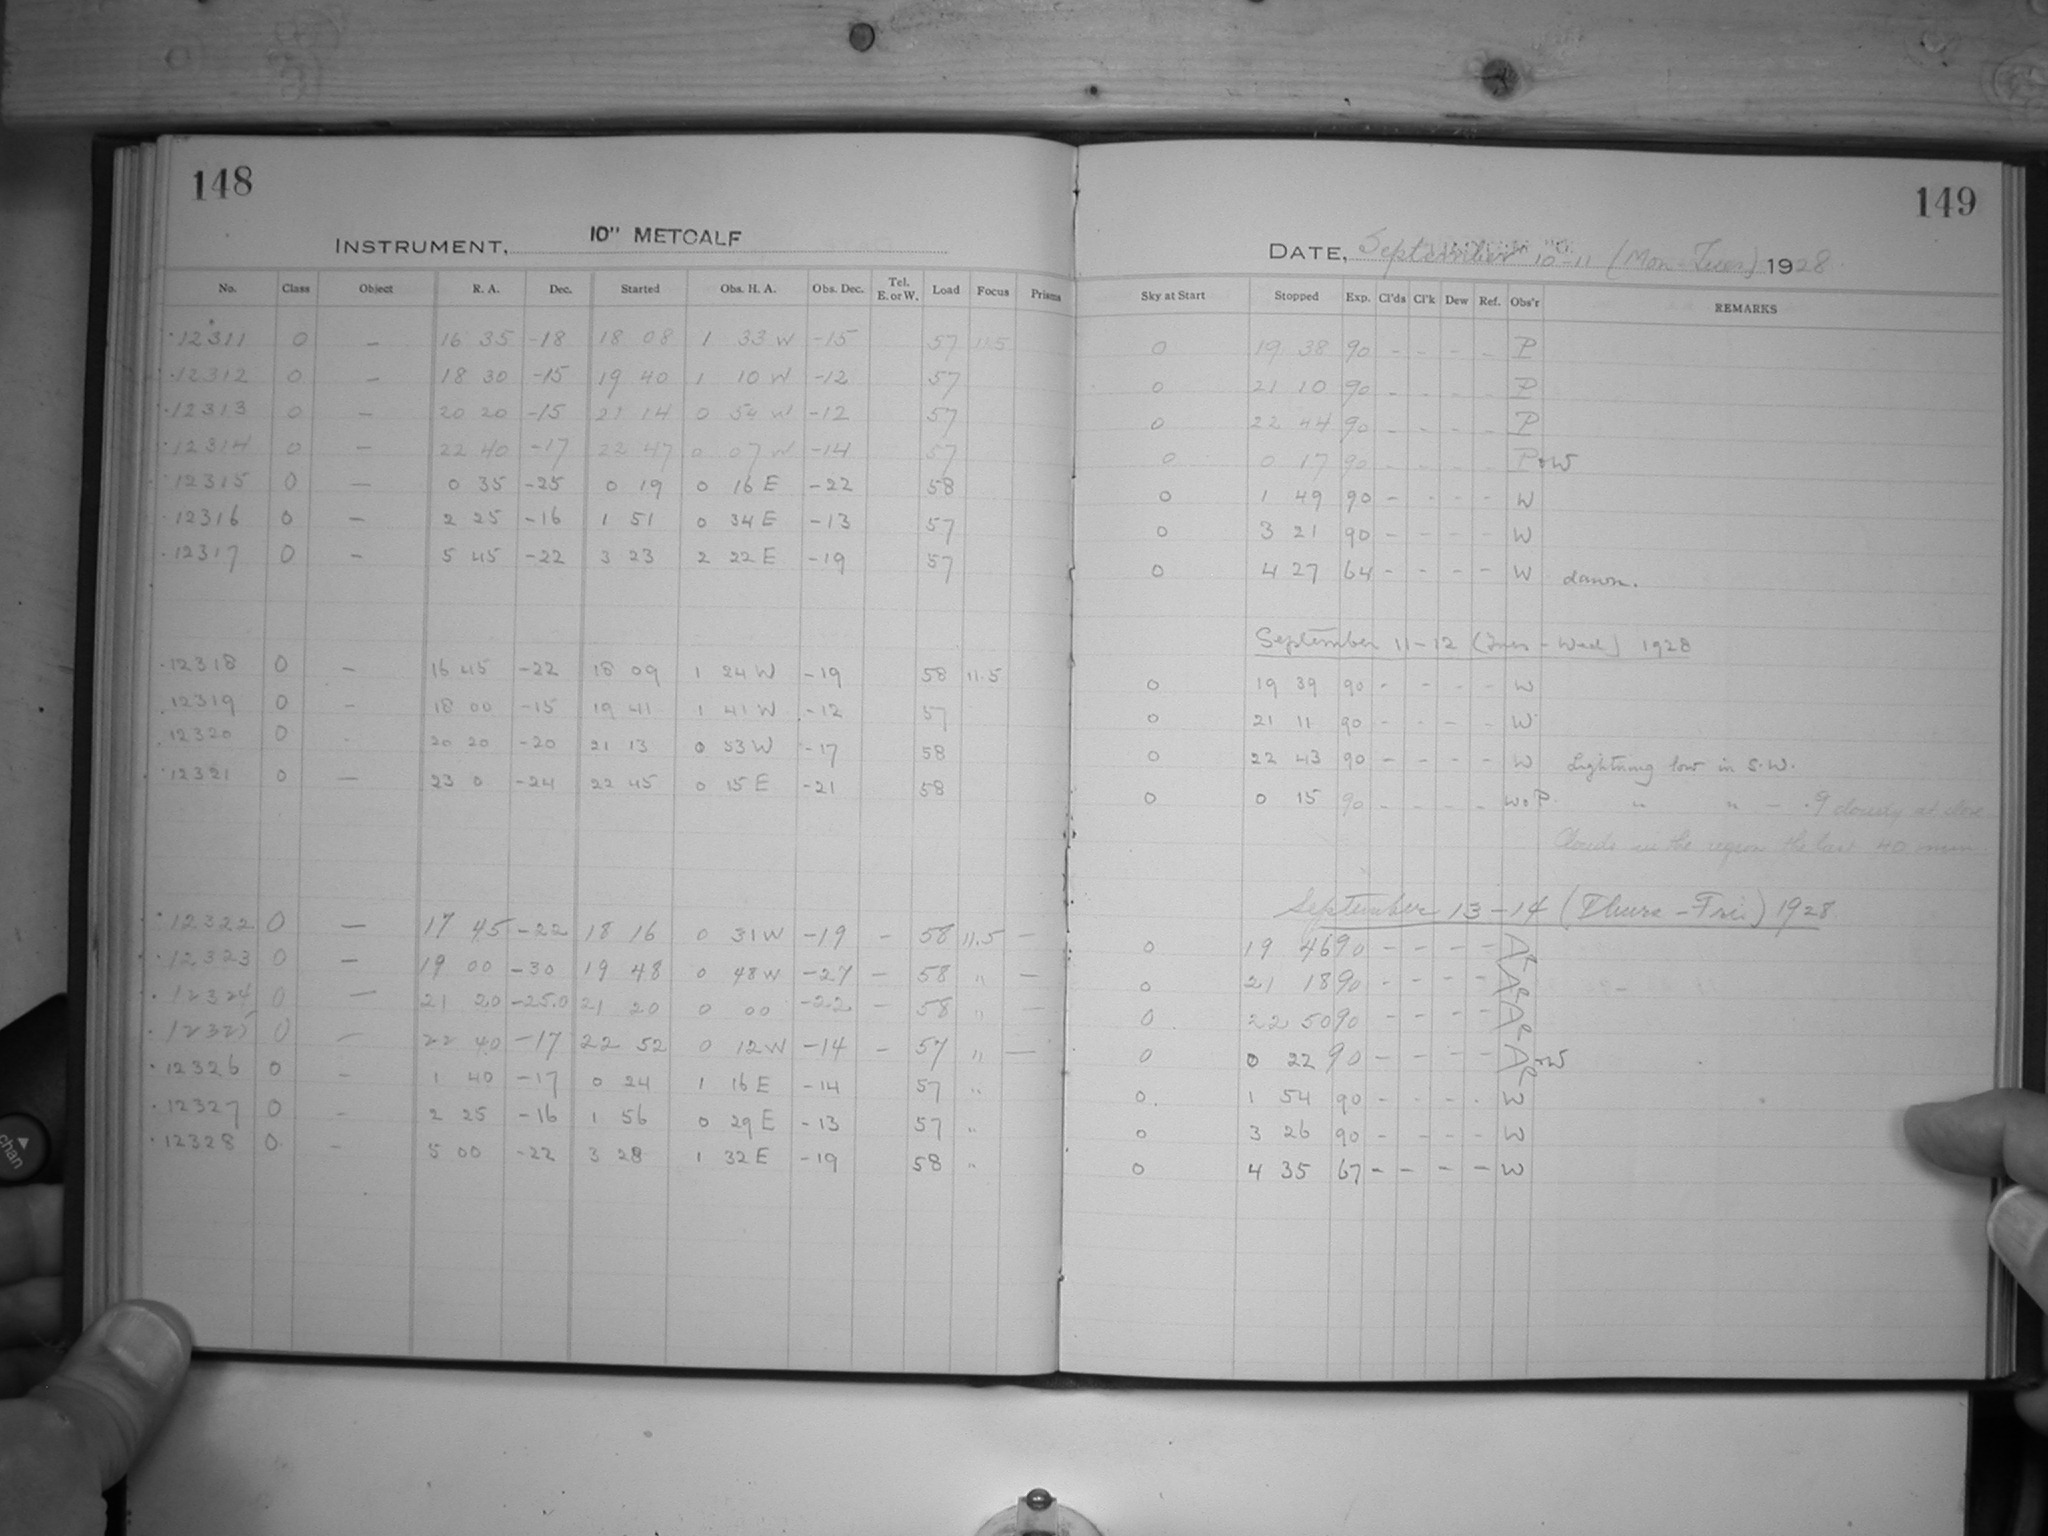 148
INSTRUMENT, 10" METCALF
No. Class Object R. A. Dec. Started Obs. H. A. Obs. Dec. Tel. E. or W. Load Focus Prisms
12311 0 — 16 35 -18 18 08 1 33 W -15 57 11.5
12312 0 — 18 30 -15 19 40 1 10 W -12 57
12313 0 — 20 20 -15 21 14 0 54 W -12 57
12314 0 — 22 40 -17 22 47 0 07 W -14 57
12315 0 — 0 35 -25 0 19 0 16 E -22 58
12316 0 — 2 25 -16 1 51 0 34 E -13 57
12317 0 — 5 45 -22 3 23 2 22 E -19 57
12318 0 — 16 45 -22 18 09 1 24 W -19 58 11.5
12319 0 — 18 00 -15 19 41 1 41 W -12 57
12320 0 - 20 20 -20 21 13 0 53 W -17 58
12321 0 — 23 0 -24 22 45 0 15 E -21 58
12322 0 — 17 45 -22 18 16 0 31 W -19 — 58 11.5 —
12323 0 — 19 00 -30 19 48 0 48 W -27 — 58 " —
12324 0 — 21 20 -25.0 21 20 0 00 -22 — 58 " —
12325 0 — 22 40 -17 22 52 0 12 W -14 — 57 " —
12326 0 — 1 40 -17 0 24 1 16 E -14 57 "
12327 0 — 2 25 -16 1 56 0 29 E -13 57 "
12328 0 — 5 00 -22 3 28 1 32 E -19 58 "
149
DATE, September 10-11 (Mon-Tues) 1928
Sky at Start Stopped Exp. Cl'ds Cl'k Dew Ref. Obs'r REMARKS
0 19 38 90 - - - - P
0 21 10 90 - - - - P
0 22 44 90 - - - - P
0 0 17 90 - - - - P+W
0 1 49 90 - - - - W
0 3 21 90 - - - - W
0 4 27 64 - - - - W dawn.
September 11-12 (Tues-Wed) 1928
0 19 39 90 - - - - W
0 21 11 90 - - - - W
0 22 43 90 - - - - W Lightning low in S.W.
0 0 15 90 - - - - W+P. " " — .9 cloudy at close
Clouds in the region the last 40 min
September 13-14 (Thurs-Fri.) 1928
0 19 46 90 - - - - AP
0 21 18 90 - - - - AP
0 22 50 90 - - - - AP
0 0 22 90 - - - - AP+W
0. 1 54 90 - - - - W
0 3 26 90 - - - - W
0 4 35 67 - - - - W
chan